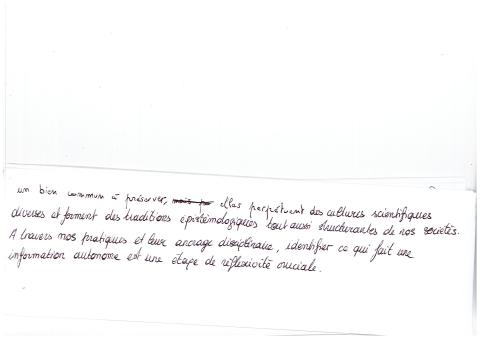 un bien commun à préserver, elles perpétuent des cultures scientifiques
diverses et forment des traditions épistémologiques tout aussi structurantes de nos sociétés.
A travers nos pratiques et leur ancrage disciplinaire, identifier ce qui fait une
information autonome est une étape de réflexivité cruciale.